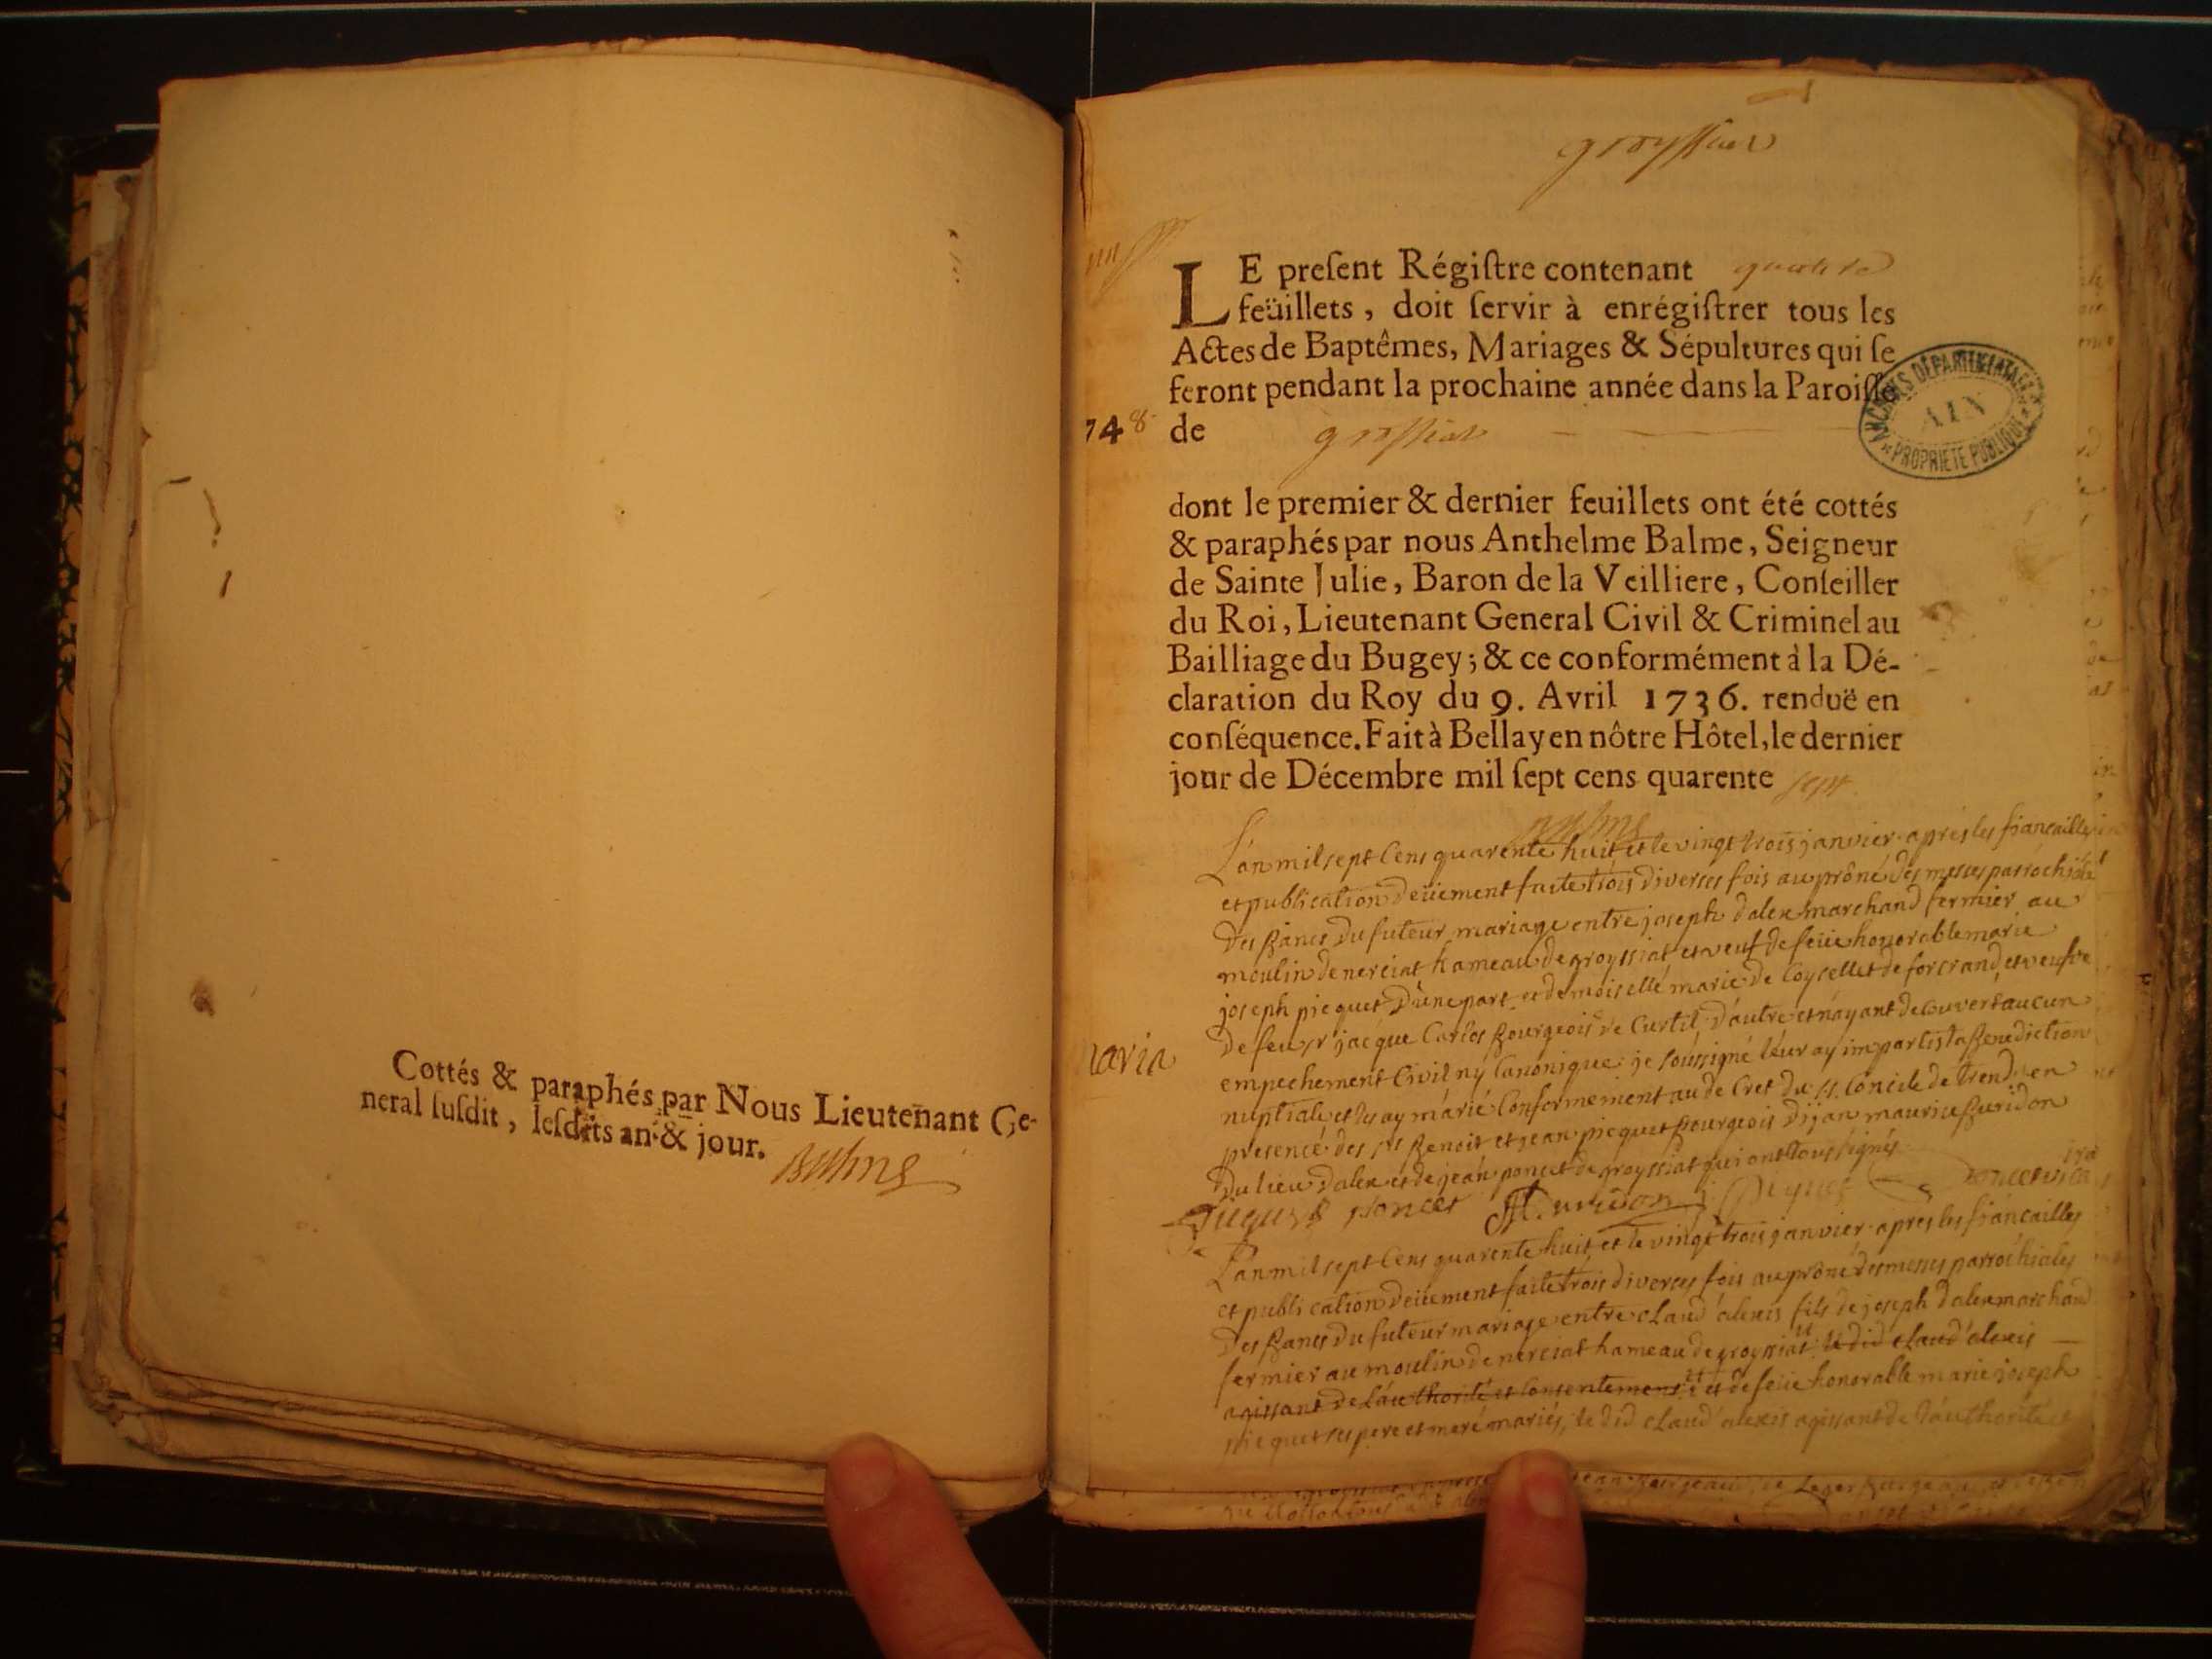 Cottés & paraphés par Nous Lieutenant Ge-
neral ſuſdit, leſdits an & jour.
Balme
groyssiat
LE preſent Régiſtre contenant quatre
feüillets, doit ſervir à enrégiſtrer tous les
Actes de Baptêmes, Mariages & Sépultures qui ſe
feront pendant la prochaine année dans la Paroiſſe
748 de grossiat
ARCHIVES DÉPARTEMENTALES
AIN
PROPRIÉTÉ PUBLIQUE
dont le premier & dernier feuillets ont été cottés
& paraphés par nous Anthelme Balme, Seigneur
de Sainte Julie, Baron de la Veilliere, Conſeiller
du Roi, Lieutenant General Civil & Criminel au
Bailliage du Bugey; & ce conformément à la Dé-
claration du Roy du 9. Avril 1736. renduë en
conſéquence. Fait à Bellay en nôtre Hôtel, le dernier
jour de Décembre mil ſept cens quarente sept
Balme
L'an mil sept Cens quarente huit et le vingt trois janvier apres les fiancailles
et publication deüement faite trois diverses fois au prône des messes parrochiales
des Bancs du futeur mariage entre joseph dalex marchand fermier au
moulin de nerciat hameau de groyssiat et veuf de feüe honorable marie
joseph picquet d'une part et demoiselle marie de Coysellet de forcrand et veufve
de feu sr jacque Carlos Bourgeois de Curtil d'autre et n'ayant decouvert aucun
empechement Civil ny Canonique je soussigné leur ay imparti la Benediction
nuptiale et les ay marié Conformement au de Cret du st. Concile de trend en
presence des srs Benoit et jean picquet Bourgeois dijan maurice Buridon
du lieu dalex et de jean poncet de groyssiat qui ont tous signés
poncet Buridon
L'an mil sept Cens quarente huit et le vingt trois janvier apres les fiancailles
et publication deüement faite trois diverses fois au prône des messes parrochiales
des Bancs du futeur mariage entre claud alexis fils de joseph dalex marchand
fermier au moulin de nerciat hameau de groyssiat le did claud alexis
agissant de l'authorité et Consentement et de feüe honorable marie joseph
picquet ses pere et mere mariés, le did claud alexis agissant de l'authorité et